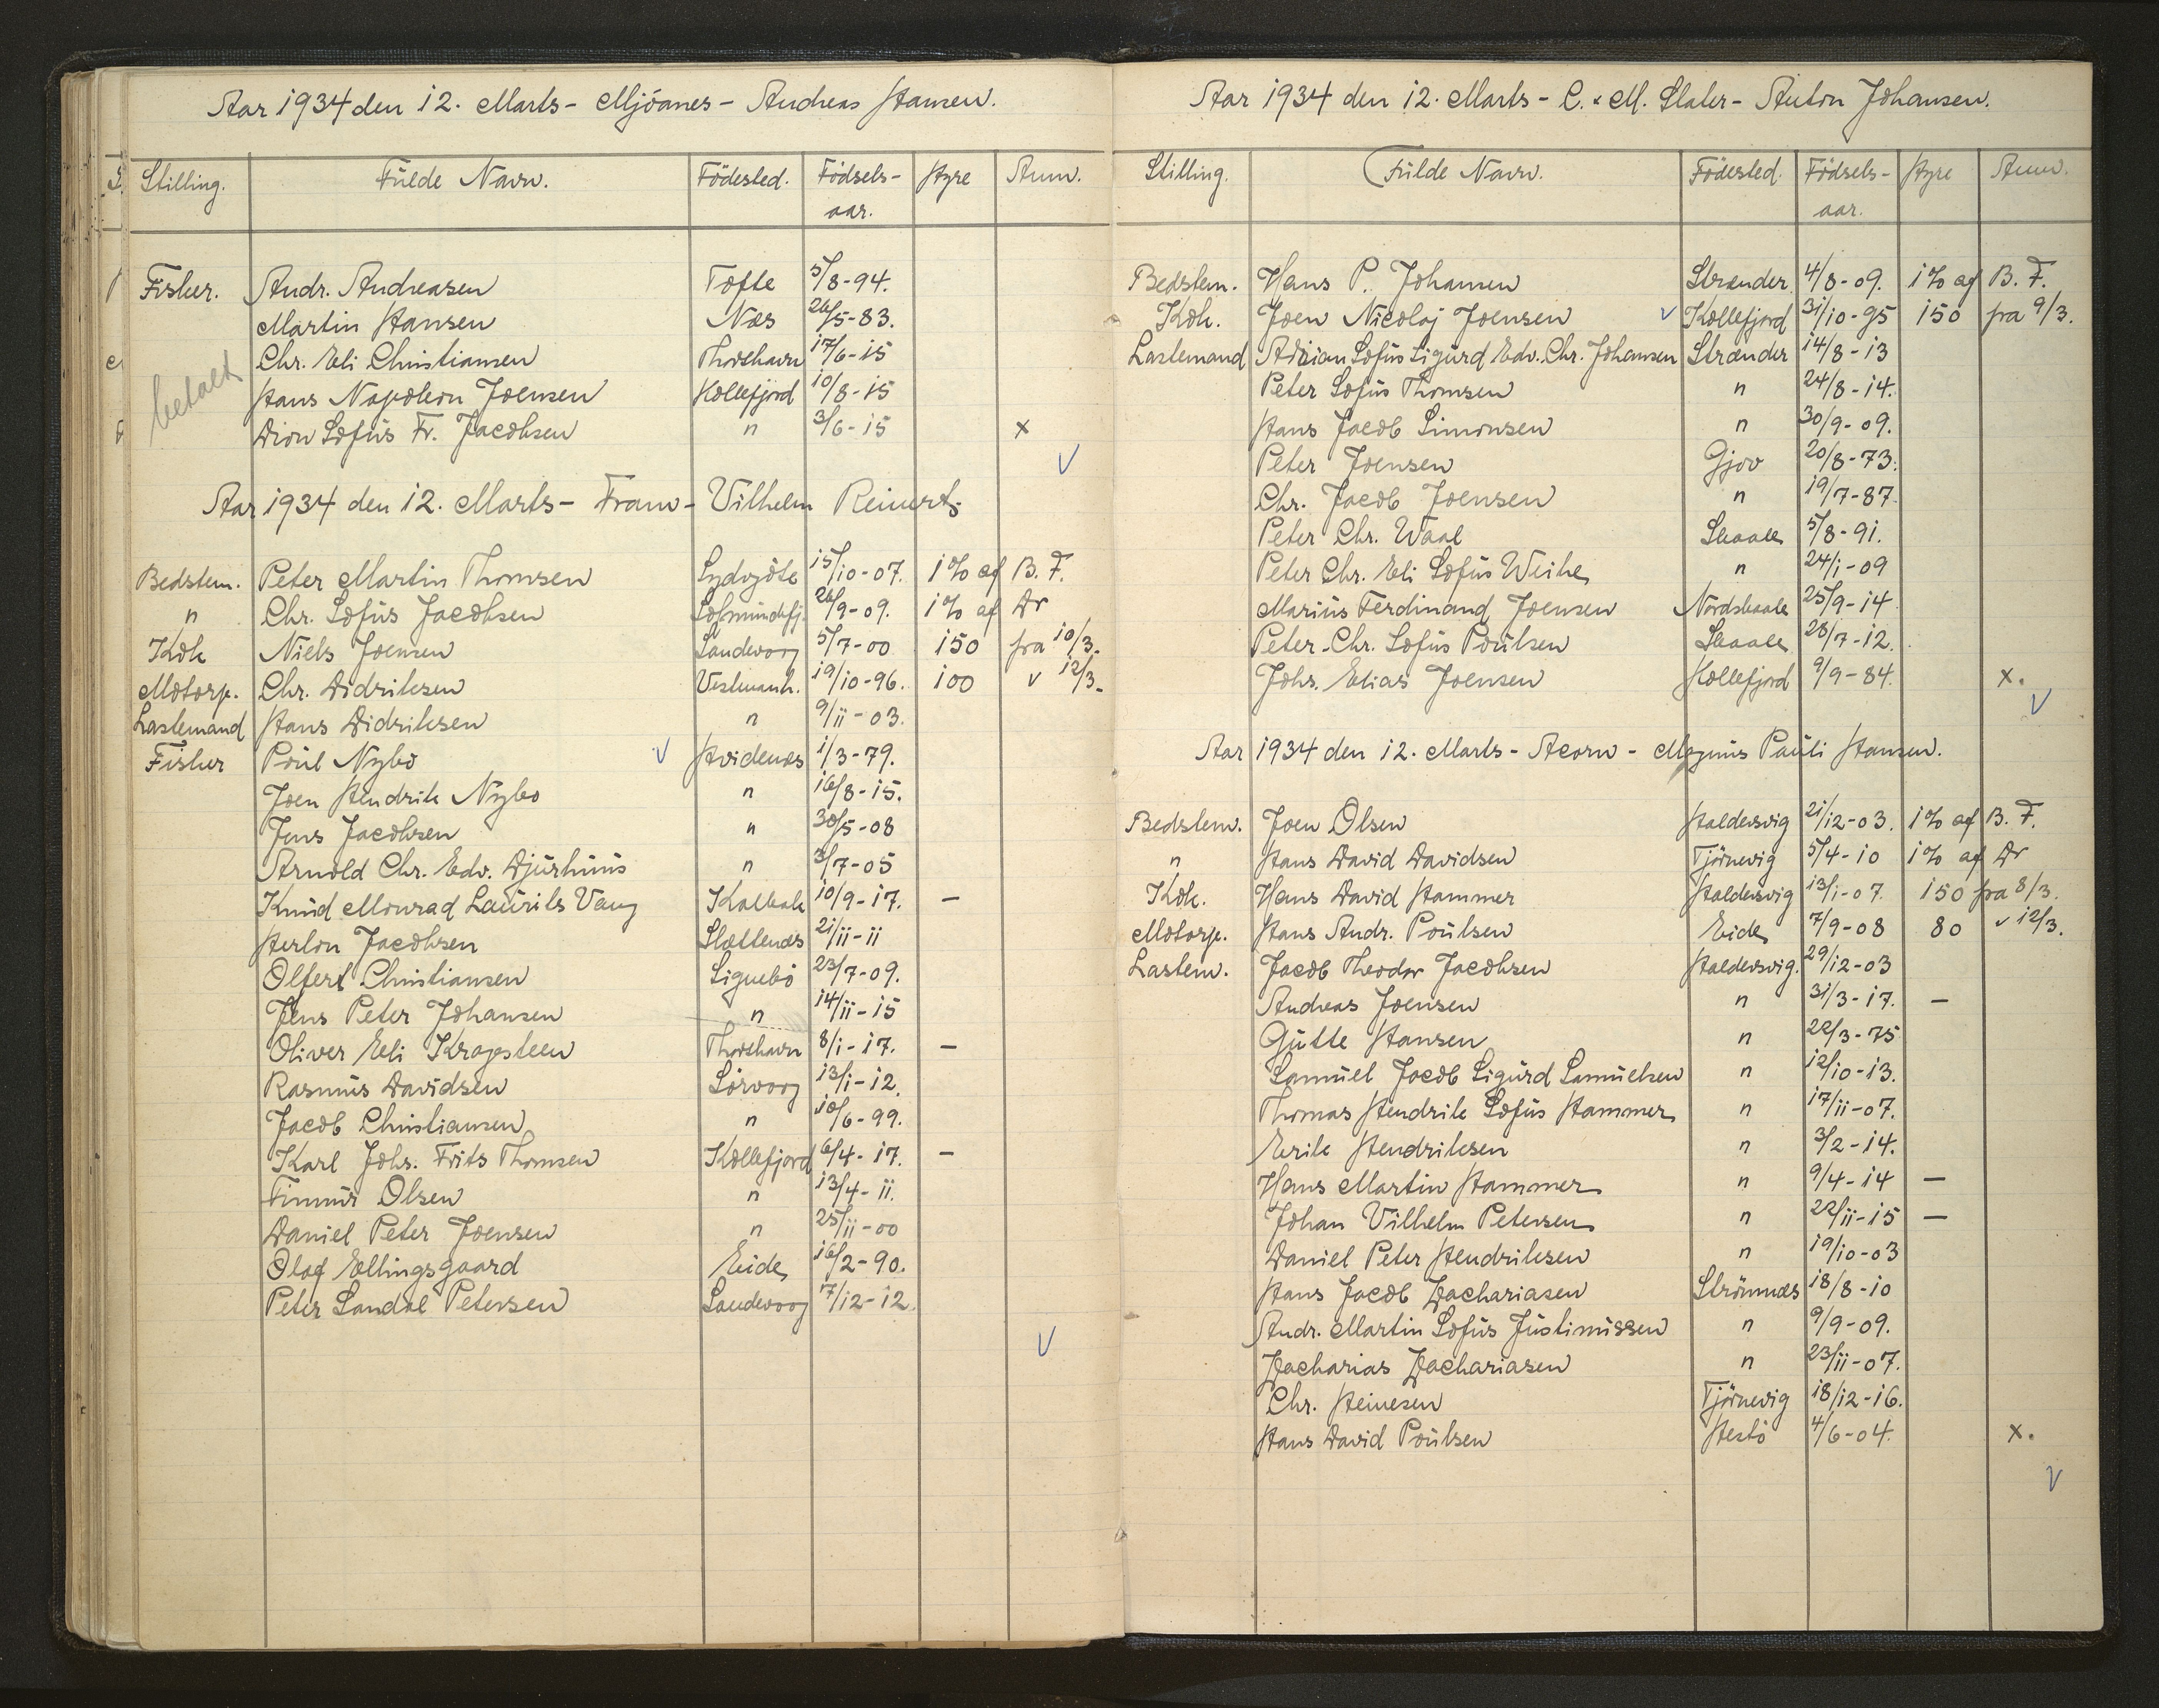 Aar 1934 den 12. Marts - Mjóanes - Andreas Hansen.
Stilling. Fulde Navn. Födested. Födsels- Hyre Anm.
aar.
Fisker. Andr. Andreasen Tofte 5/8-94.
Martin Hansen Næs 26/5-83.
Chr. Eli Christiansen Thorshavn 17/6-15
betalt
Hans Napoleon Joensen Kollefjord 10/8-15
Dion Sofus Fr. Jacobsen " 3/6-15 x
Aar 1934 den 12. Marts - Fram - Vilhelm Reinert
Bedstem. Peter Martin Thomsen Sydrgöte 15/10-07. 1% af B. F.
" Chr. Sofus Jacobsen 26/9-09. 1% af Dr
Kok Niels Joensen Sandevaag 5/7-00 150 fra 10/3.
Motorp. Chr. Didriksen Vestmanh. 19/10-96. 100 v 12/3.
Lastemand Hans Didriksen " 9/11-03.
Fisker Poul Nybo v Hvidenæs 1/3-79.
Joen Hendrik Nybo " 16/8-15.
Jens Jacobsen " 30/5-08
Arnold Chr. Edv. Djurhuus " 3/7-05
Knud Monrad Laurits Vang Kalbak 10/9-17. -
Herlon Jacobsen Slættenæs 21/11-11
Olfert Christiansen Signebö 23/7-09.
Jens Peter Johansen " 14/11-15
Oliver Eli Kragesteen Thorshavn 8/1-17. -
Rasmus Davidsen Sörvaag 13/1-12.
Jacob Christiansen " 10/6-99.
Karl Johs. Frits Thomsen Kollefjord 6/4-17. -
Finnur Olsen " 13/4-11.
Daniel Peter Joensen " 25/11-00
Olaf Ellingsgaard Eide 16/2-90.
Peter Sandal Petersen Sandevaag 7/12-12.
Aar 1934 den 12. Marts - C. & M. Slater - Anton Johansen.
Stilling. Fulde Navn. Födested. Födsels- Hyre Anm.
aar.
Bedstem. Hans P. Johansen Strænder 4/8-09. 1% af B. F.
Kok. Joen Nicolaj Joensen v Kollefjord 31/10-95 150 fra 9/3.
Lastemand Adrian Sofus Sigurd Edv. Chr. Johansen Strænder 14/8-13
Peter Sofus Thomsen " 24/8-14.
Hans Jacob Simonsen " 30/9-09.
Peter Joensen Gjov 20/8-73.
Chr. Jacob Joensen " 19/7-87.
Peter Chr. Waal Skaale 5/8-91.
Peter Chr. Eli Sofus Weihe " 24/1-09
Marius Ferdinand Joensen Nordskaale 25/9-14
Peter Chr. Sofus Poulsen Skaale 28/7-12.
Johs. Elias Joensen Kollefjord 9/9-84. x.
Aar 1934 den 12. Marts - Acorn - Magnus Pauli Hansen.
Bedstem. Joen Olsen Haldersvig 21/12-03. 1% af B. F.
" Hans David Davidsen Tjörnevig 5/4-10 1% af Dr
Kok. Hans David Hammer Haldersvig 13/1-07. 150 fra 8/3.
Motorp. Hans Andr. Poulsen Eide 7/9-08 80 v 12/3.
Lastem. Jacob Theodor Jacobsen Haldersvig. 29/12-03
Andreas Joensen " 31/3-17. -
Gutte Hansen " 22/3-75
Samuel Jacob Sigurd Samuelsen " 12/10-13.
Thomas Hendrik Sofus Hammer " 17/11-07.
Erik Hendriksen " 3/2-14.
Hans Martin Hammer " 9/4-14 -
Johan Vilhelm Petersen " 22/11-15 -
Daniel Peter Hendriksen " 19/10-03
Hans Jacob Zachariasen Strömnæs 18/8-10
Andr. Martin Sofus Justinussen " 9/9-09.
Zacharias Zachariasen " 23/11-07.
Chr. Heinesen Tjörnevig 18/12-16.
Hans David Poulsen Hestö 4/6-04. x.